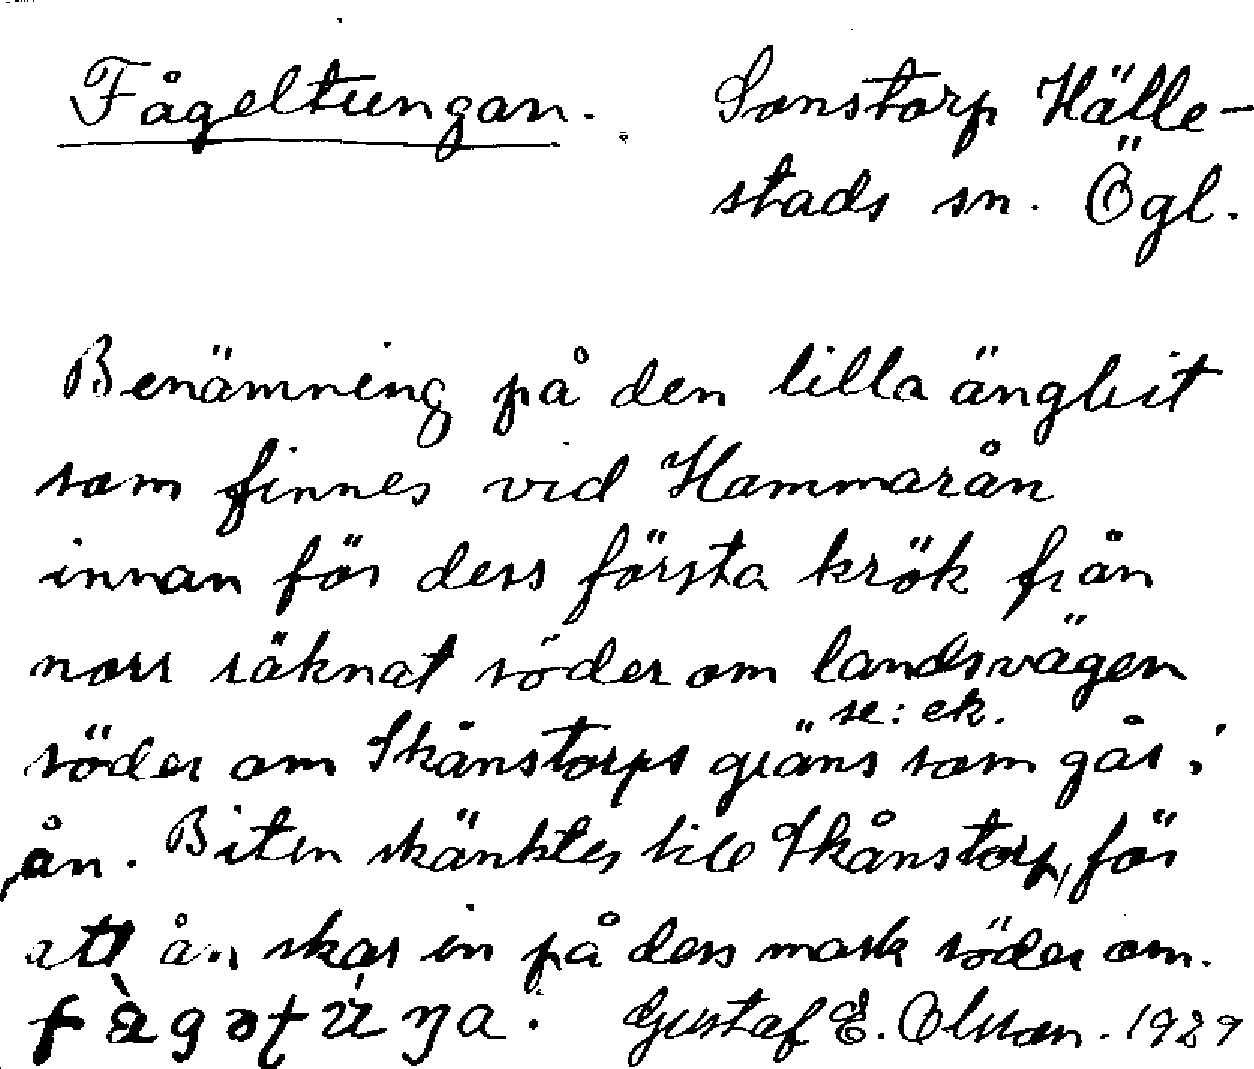 Fågeltungan. Sonstorp Hälle-
stads sn. Ögl.
Benämning på den lilla ängbit
som finnes vid Hammarån
innan för dess första krök från
norr räknat söder om landsvägen
se: ek.
söder om Skånstorps gräns som går i
ån. Biten skänktes till Skånstorp, för
att ån skar in på dess mark söder om.
Gustaf E. Olsson. 1929